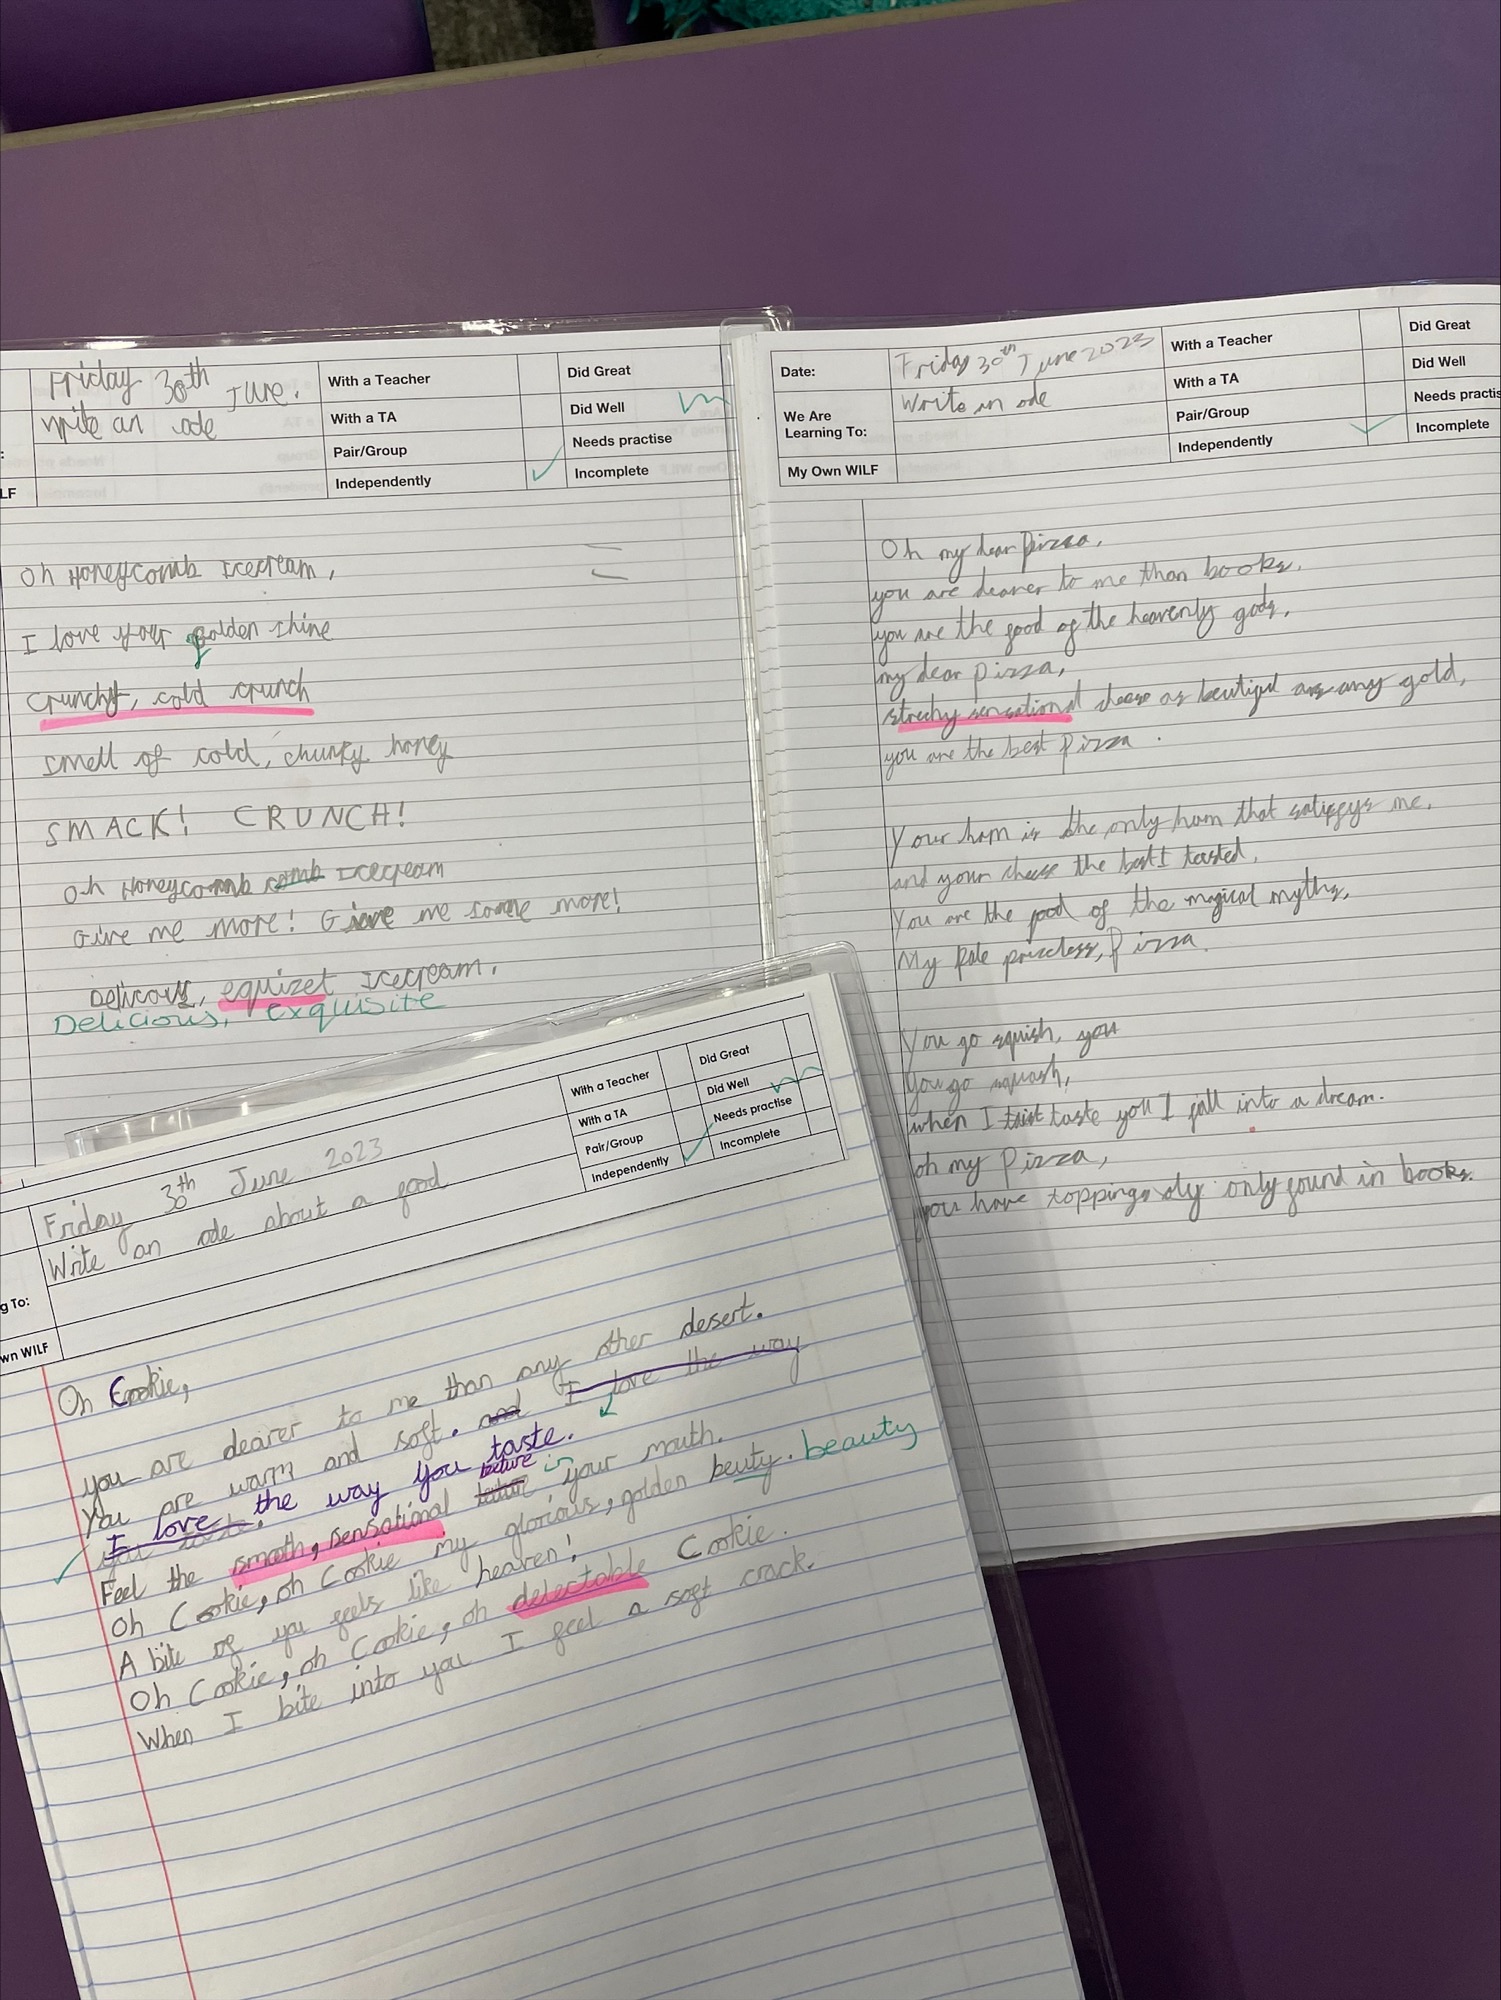 Friday 30th June.
Write an ode
:
LF
With a Teacher
With a TA
Pair/Group
Independently
Did Great
Did Well
Needs practise
Incomplete
Oh Honeycomb Icecream,
I love your golden shine
Crunchy, cold crunch
Smell of cold, chunky honey
SMACK! CRUNCH!
Oh Honeycomb comb Icecream
Give me more! Give me some more!
Delicous, equizet Icecream.
Delicious, exquisite
Date:
Friday 30th June 2023
We Are
Learning To:
Write an ode
My Own WILF
With a Teacher
With a TA
Pair/Group
Independently
Did Great
Did Well
Needs practis
Incomplete
Oh my dear pizza,
you are dearer to me than books,
you are the food of the heavenly gods,
my dear pizza,
strechy sensational cheese as beutiful as any gold,
you are the best pizza.
Your ham is the only ham that satisfys me,
and your cheese the best I tasted,
You are the food of the magical myths,
My priceless, Pizza.
You go squish, you
You go squash,
when I taste you I fall into a dream.
oh my pizza,
you have toppings only found in books.
Friday 30th June 2023
g To:
Write an ode about a food
wn WILF
With a Teacher
With a TA
Pair/Group
Independently
Did Great
Did Well
Needs practise
Incomplete
Oh Cookie,
you are dearer to me than any other desert.
You are warm and soft. and I love the way
I love the way you taste.
Feel the smooth, sensational in your mouth.
Oh Cookie, oh Cookie my glorious, golden beuty. beauty
A bite of you feels like heaven!
Oh Cookie, oh Cookie, oh delectable Cookie.
When I bite into you I feel a soft crack.